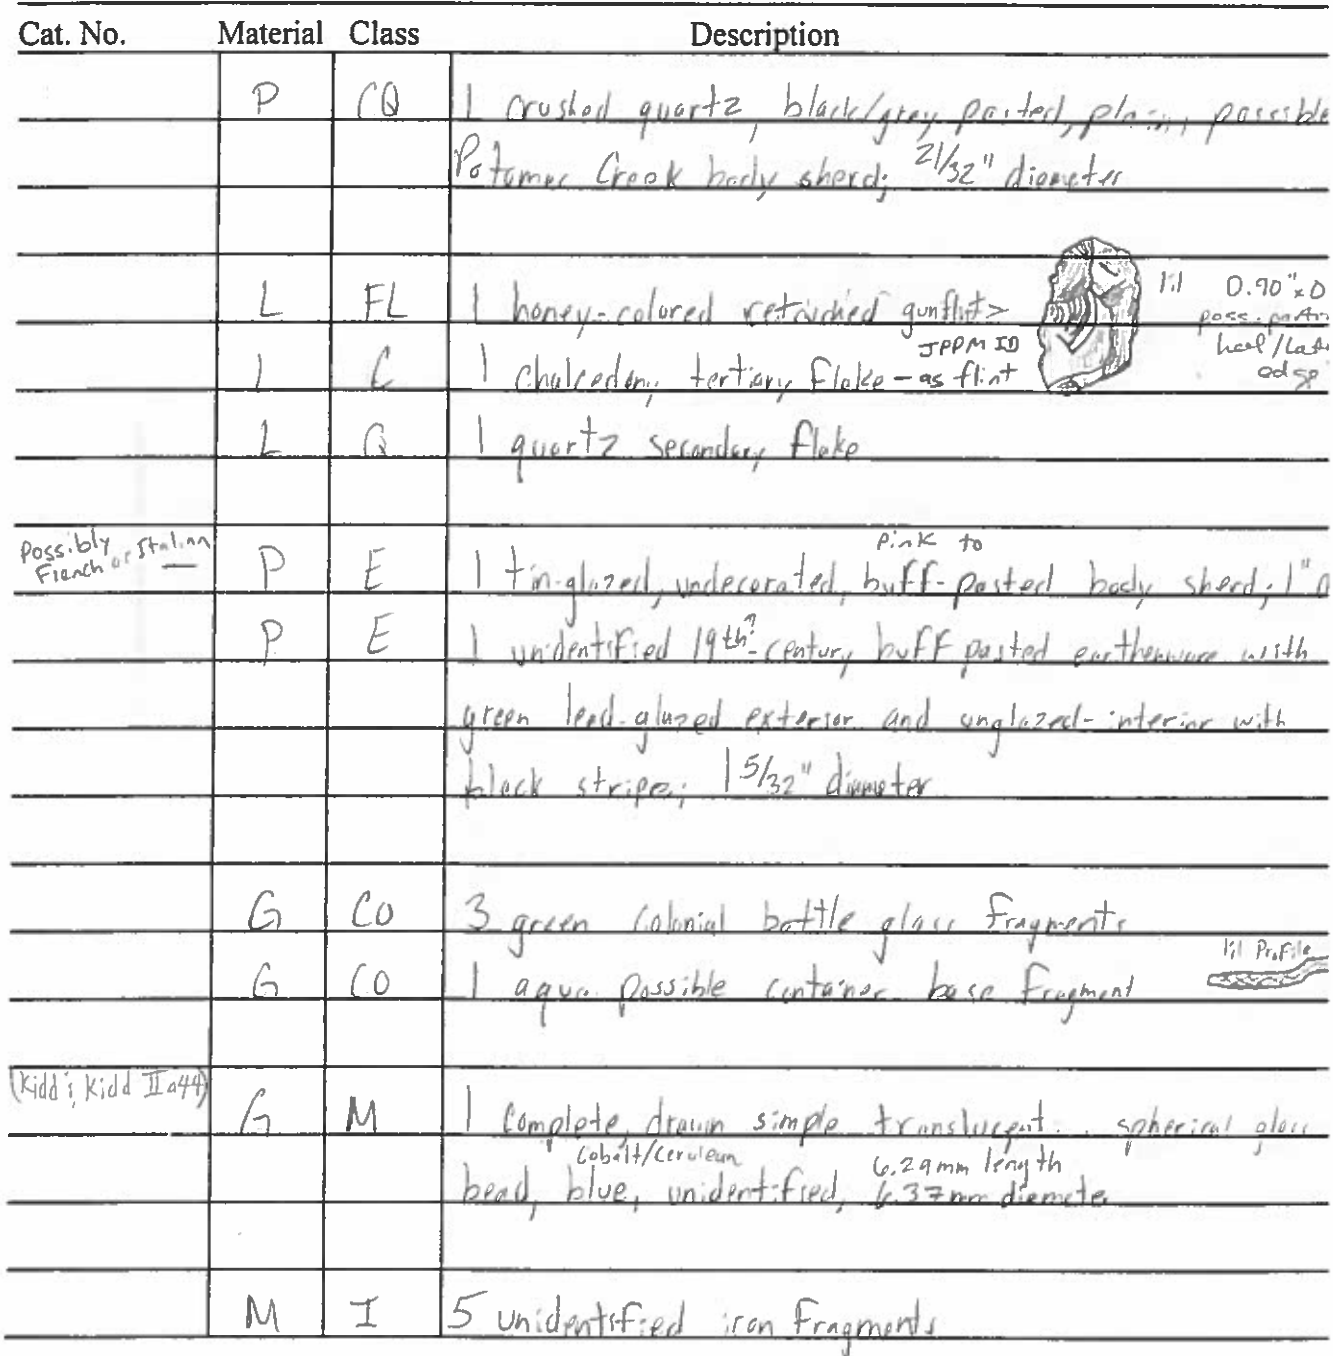 Cat. No. Material Class Description
P CQ 1 crushed quartz, black/grey pasted, plain, possible
Potomac Creek body sherd; 21/32" diameter
L FL 1 honey-colored retouched gunflint > 1:1 0.90" x 0
poss.
JPPM ID heel/
L C 1 chalcedony tertiary flake - as flint edge
L Q 1 quartz secondary flake
Possibly French or Italian
pink to
P E 1 tin-glazed, undecorated, buff-pasted body sherd; 1"
P E 1 unidentified 19th?-century buff pasted earthenware with
green lead-glazed exterior and unglazed-interior with
black stripe; 1 5/32" diameter
G CO 3 green colonial bottle glass fragments
1:1 Profile
G CO 1 aqua possible container base fragment
(Kidd & Kidd IIa44)
G M 1 complete, drawn simple translucent spherical glass
Cobalt/Cerulean 6.29mm length
bead, blue, unidentified, 6.37mm diameter
M I 5 unidentified iron fragments